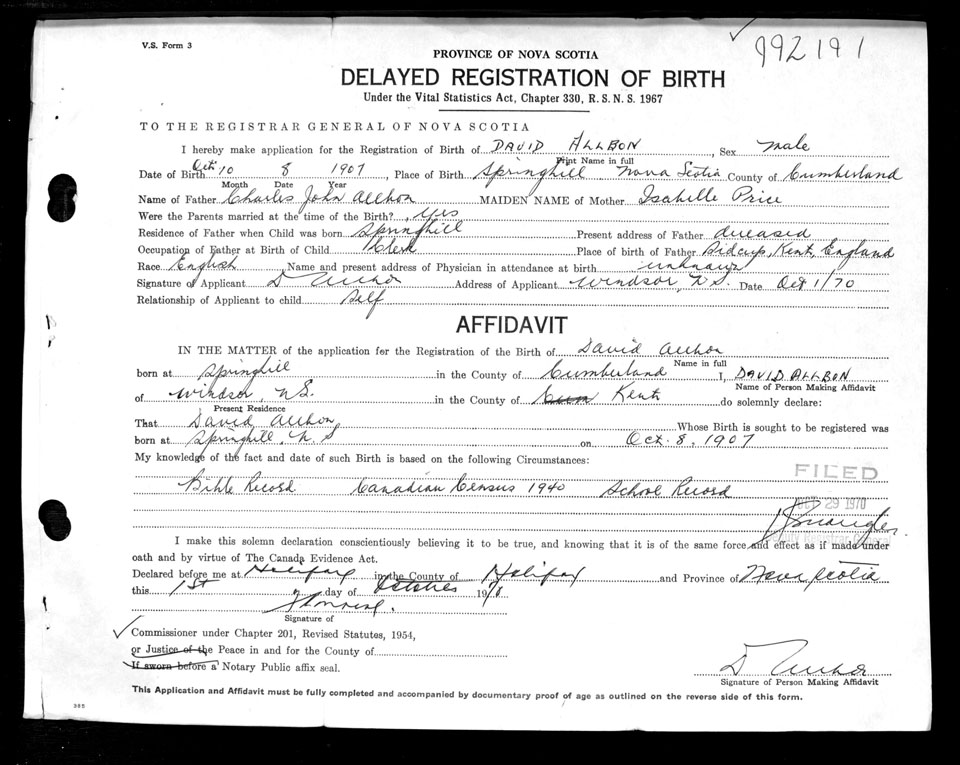 V.S. Form 3
992191
PROVINCE OF NOVA SCOTIA
DELAYED REGISTRATION OF BIRTH
Under the Vital Statistics Act, Chapter 330, R.S.N.S. 1967
TO THE REGISTRAR GENERAL OF NOVA SCOTIA
I hereby make application for the Registration of Birth of DAVID ALLBON, Sex Male
Print Name in full
Date of Birth Oct 10 8 1907, Place of Birth Springhill Nova Scotia County of Cumberland
Month Date Year
Name of Father Charles John Allbon MAIDEN NAME of Mother Isabelle Price
Were the Parents married at the time of the Birth? Yes
Residence of Father when Child was born Springhill Present address of Father deceased
Occupation of Father at Birth of Child Clerk Place of birth of Father Sidcup, Kent, England
Race English Name and present address of Physician in attendance at birth unknown
Signature of Applicant D Allbon Address of Applicant Windsor, N.S. Date Oct 1/70
Relationship of Applicant to child Self
AFFIDAVIT
IN THE MATTER of the application for the Registration of the Birth of David Allbon
Name in full
born at Springhill in the County of Cumberland I, DAVID ALLBON
Name of Person Making Affidavit
of Windsor, N.S. in the County of Cum Kent do solemnly declare:
Present Residence
That David Allbon Whose Birth is sought to be registered was
born at Springhill, N.S on Oct. 8, 1907
My knowledge of the fact and date of such Birth is based on the following Circumstances:
FILED
Bible Record Canadian Census 1940 School Record
29 1970
Deputy Registrar General
I make this solemn declaration conscientiously believing it to be true, and knowing that it is of the same force and effect as if made under
oath and by virtue of The Canada Evidence Act.
Declared before me at Halifax in the County of Halifax and Province of Nova Scotia
this 1st day of October 1970
Signature of
Commissioner under Chapter 201, Revised Statutes, 1954,
or Justice of the Peace in and for the County of
If sworn before a Notary Public affix seal.
D Allbon
Signature of Person Making Affidavit
This Application and Affidavit must be fully completed and accompanied by documentary proof of age as outlined on the reverse side of this form.
385